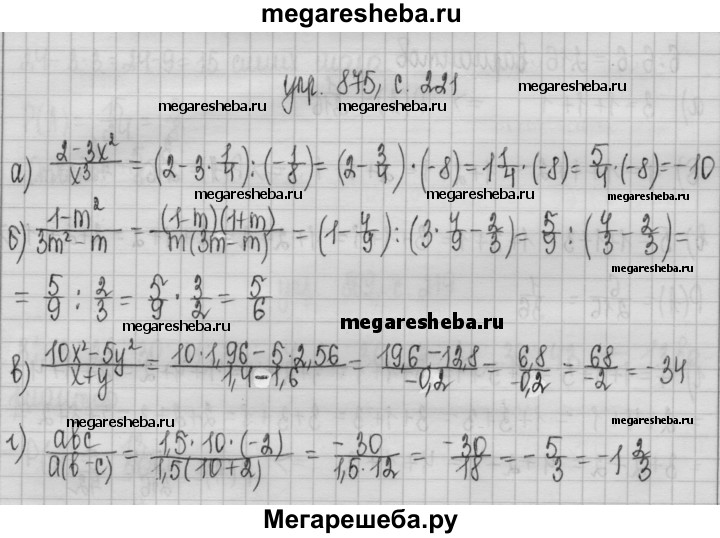 megaresheba.ru
упр. 875, с. 221
megaresheba.ru megaresheba.ru megaresheba.ru
а) (2-3x²)/x³ = (2-3·1/4):(-1/8) = (2-3/4)·(-8) = 1 1/4·(-8) = 5/4·(-8) = -10
megaresheba.ru megaresheba.ru
б) (1-m²)/(3m²-m) = (1-m)(1+m)/m(3m-m) = (1-4/9):(3·4/9-2/3) = 5/9:(4/3-2/3) =
megaresheba.ru
= 5/9:2/3 = 5/9·3/2 = 5/6
megaresheba.ru megaresheba.ru
в) (10x²-5y²)/(x+y) = (10·1,96-5·2,56)/(1,4-1,6) = (19,6-12,8)/(-0,2) = 6,8/(-0,2) = 68/(-2) = -34
megaresheba.ru megaresheba.ru megaresheba.ru
г) abc/a(b-c) = 1,5·10·(-2)/1,5(10+2) = -30/1,5·12 = -30/18 = -5/3 = -1 2/3
Мегарешеба.ру